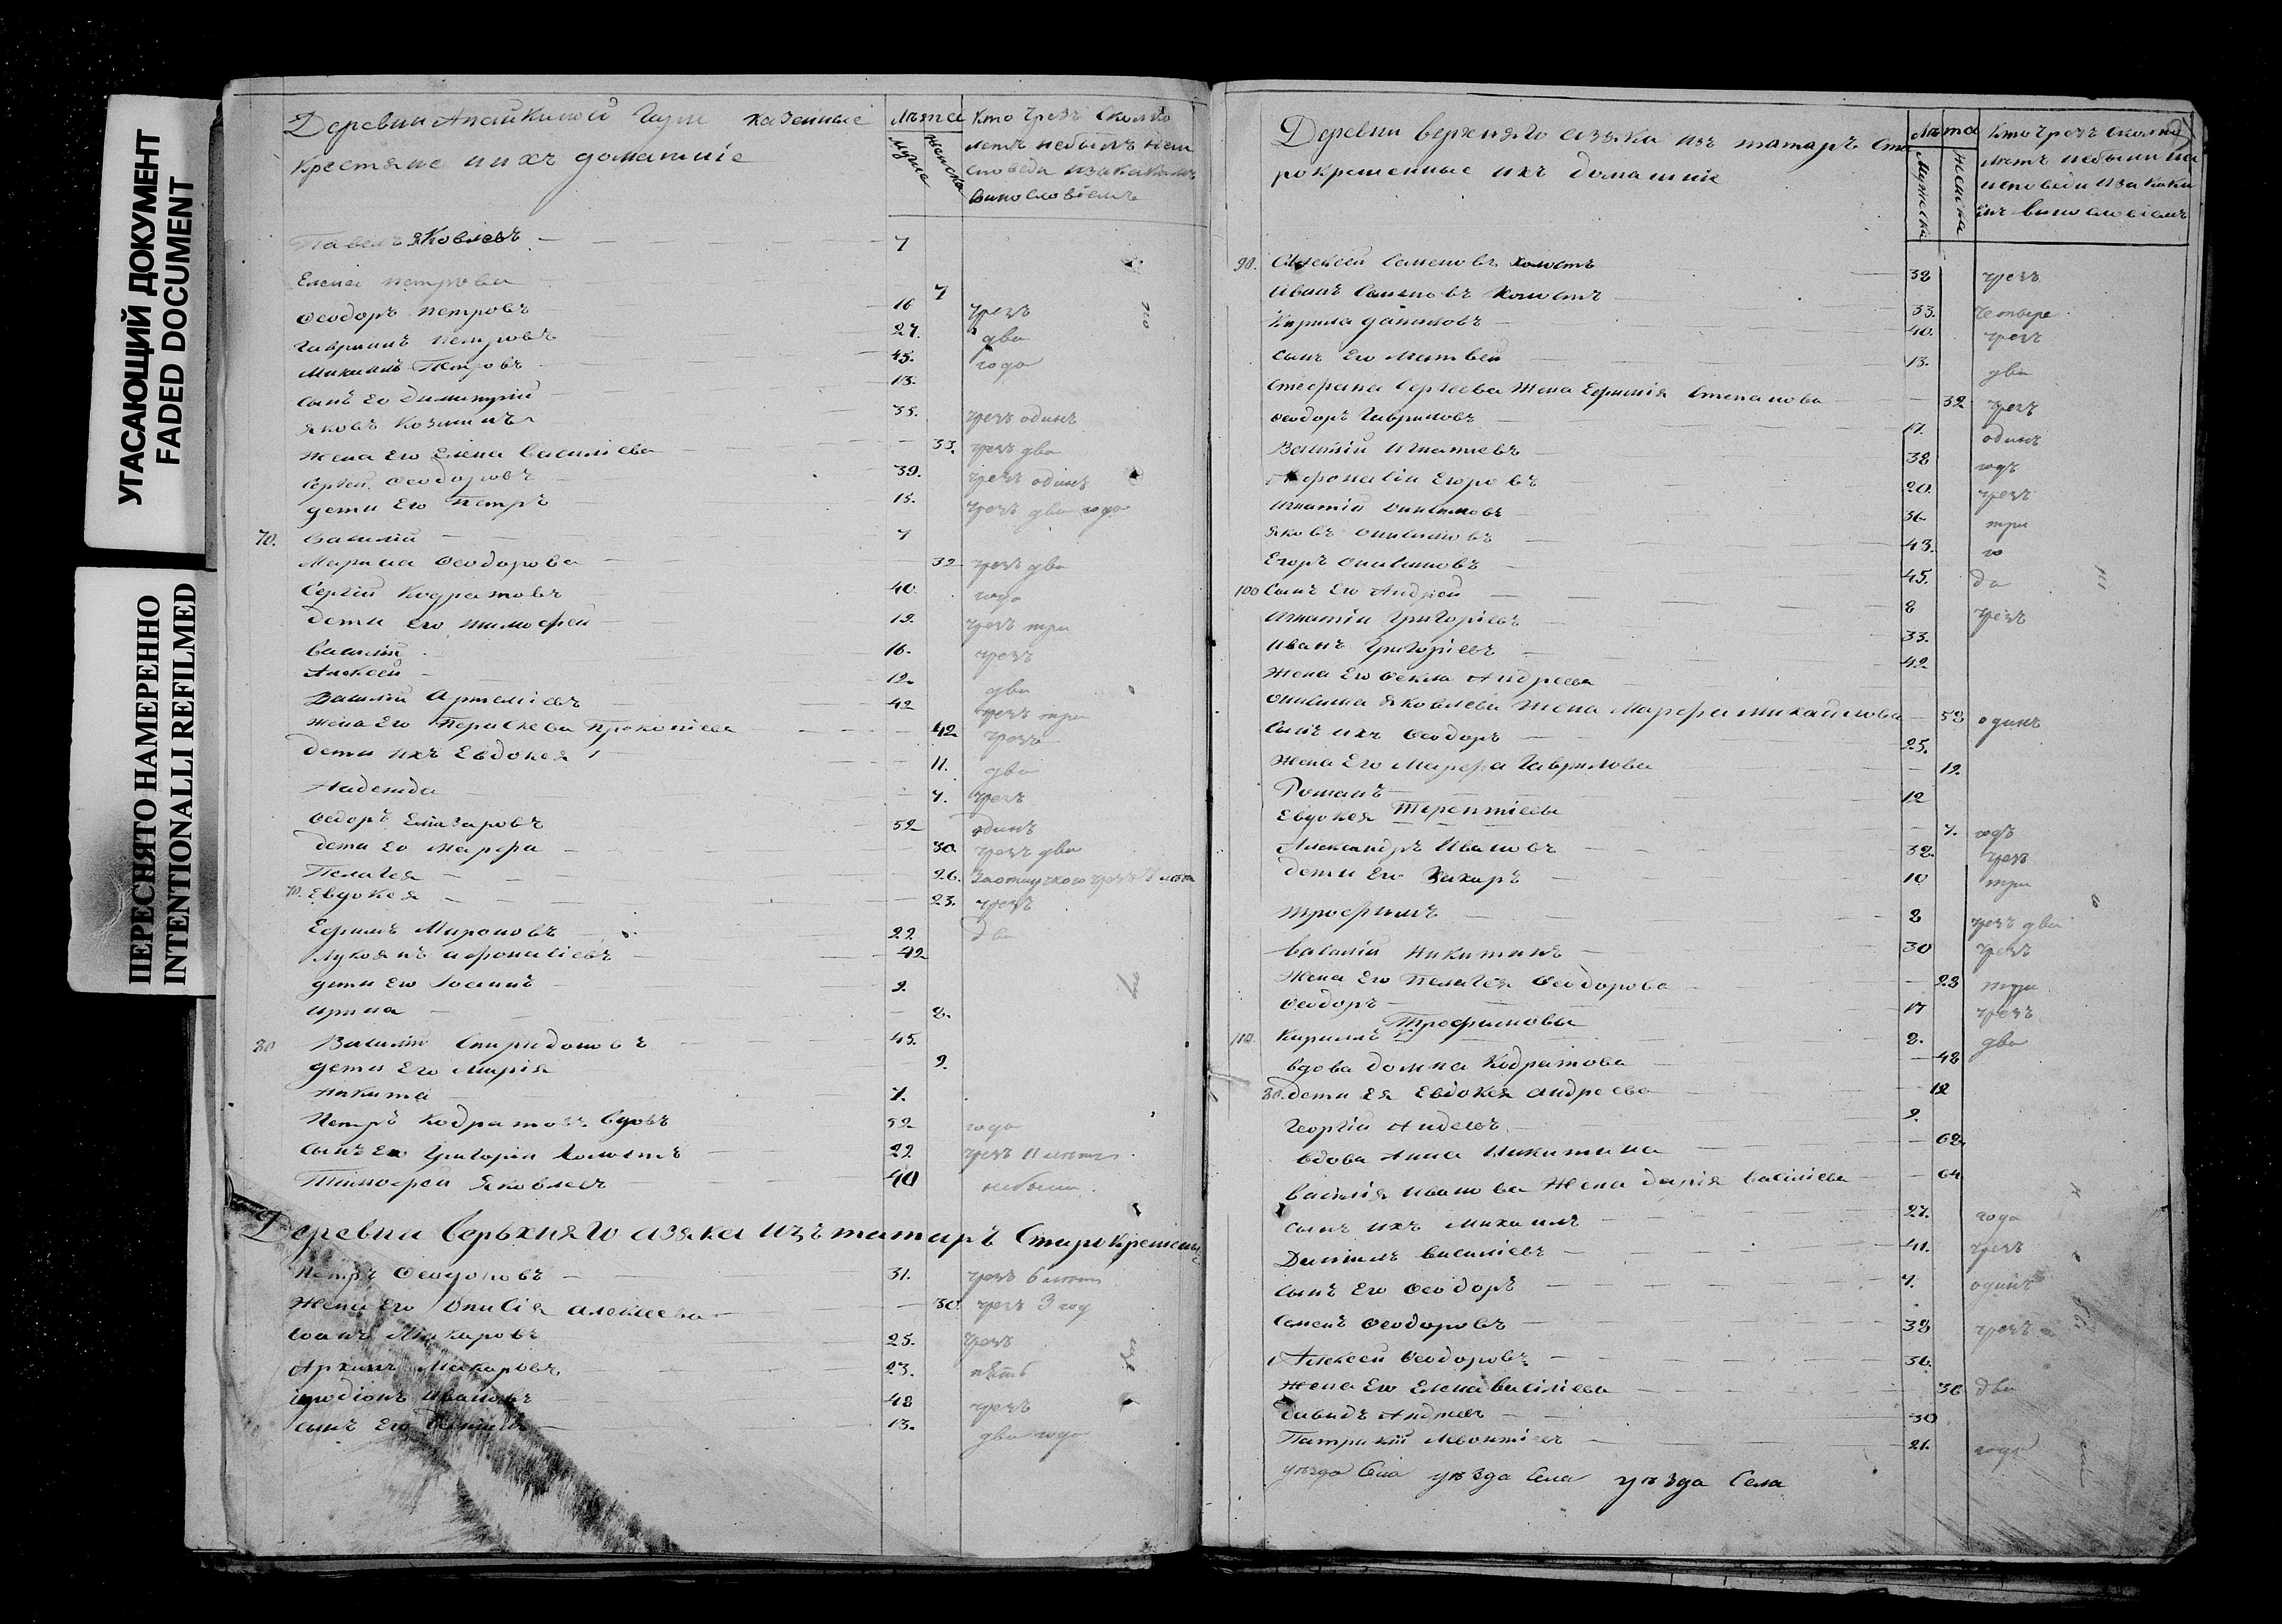 УГАСАЮЩИЙ ДОКУМЕНТ
FADED DOCUMENT
ПЕРЕСНЯТО НАМЕРЕННО
INTENTIONALLI REFILMED
Деревни Апайкиной Гари казенные
крестяне и ихъ домашніе
Лѣта
мужска
женска
кто чрезъ сколко
летъ небылъ на ис
поведи и за какимъ
винословіемъ
Павелъ Яковлевъ 7
Елена петрова 7
Ѳеодоръ петровъ 16 чрезъ
Гаврилъ петровъ 27. два
Михаилъ Петровъ 45. года
сынъ Его димитрий 13.
Яковъ Козминъ 35. чрезъ одинъ
жена Его Елена Василіева 33. чрезъ два
Сергей Ѳеодоровъ 39. чрезъ одинъ
дети Его Петръ 15. чрезъ два года
70. Василій 7
Марина Ѳеодорова 32 чрезъ два
Сергій Кодратовъ 40. года
дети Его тимофей 19. чрезъ три
Василій 16. чрезъ
Алексей 12. два
Василій Артеміевъ 42 чрезъ три
жена Его Параскева Прокопіева 42 чрезъ
дети ихъ Евдокея 11. два
Надежда 7. чрезъ
Ѳедоръ Елизаровъ 52 одинъ
дети Ео Марѳа 30 чрезъ два
Пелагея 26. чрезъ
Евдокея 23. чрезъ
Ефимъ Мироновъ 22 два
Лукоянъ Афонасіевъ 42
дети Его Іосипъ 9.
ирина 8.
80 Василій Спиридоновъ 45.
дети Его Марія 9.
никита 7.
Петръ Кодратовъ вдовъ 52 года
сынъ Его Григорій холостъ 22 чрезъ 11 летъ
Тимофей Яковлевъ 40 небылъ
Деревни Верьхняго Азяка изъ татаръ Старокрещены
Петръ 31. чрезъ 6 летъ
Жена Его Алексеева 30. чрезъ 3 год
Іоанъ Макаровъ 25. чрезъ
Архипъ Макаровъ 23. пять
Иродіонъ Ивановъ 48 чрезъ
сынъ Его 13. два года
Деревни верхняго азяка изъ татаръ Ста
рокрешенные ихъ домашніе
Лѣта
Мужска
женска
Кто чрезъ сколко
летъ небыли на
исповеди и за каки
мъ винословіемъ
90. Алексей Семеновъ холостъ 38 чрезъ
Иванъ Семеновъ холостъ 33. четыре
Кирила даниловъ 40. чрезъ
сынъ Его Матвей 13. два
Стефана Сергеева жена Ефимія Степанова 32 чрезъ
Ѳеодоръ Гавриловъ 17. одинъ
Василій Игнатиевъ 38 годъ
Афонасіи Егоровъ 20. чрезъ
Игнатій Онисимовъ 36. три
Яковъ Онисимовъ 43. го
Егоръ Онисимовъ 45. да
100 Сынъ Его Андрей 8 чрезъ
Игнатіи Григоріевъ 33.
Иванъ Григоріевъ 42
Жена Его Ѳекла Андреева
Онисима Яковлева жена Марфа михайлова 53 одинъ
Сынъ ихъ Ѳеодоръ 25.
Жена Его Марфа Гаврилова 19.
Романъ 12
Евдокея Терентіевы 7. годъ
Александръ Ивановъ 32. чрезъ
дети Его Захаръ 10 три
трофимъ 8 чрезъ два
Василій никитинъ 30 чрезъ
Жена Его Пелагея Ѳеодорова 23 три
Ѳеодоръ 17 чрезъ
Кирилъ Трофимовы 8. два
вдова домна Кодратова 48
дети Ея Евдокея Андреева 12
Георгій 9.
вдова Анна Никитина 62.
Василія Иванова жена дарія василіева 64
сынъ ихъ михаилъ 27. года
Даніилъ василіевъ 41. чрезъ
сынъ Его Ѳеодоръ 7. одинъ
Семенъ Ѳеодоровъ 38 чрезъ
Алексей Ѳеодоровъ 36.
Жена Его Елена василіева 36 два
давидъ Андреевъ 30
Патракій Леонтіевъ 21. года
уѣзда Села уѣзда Села уѣзда Села